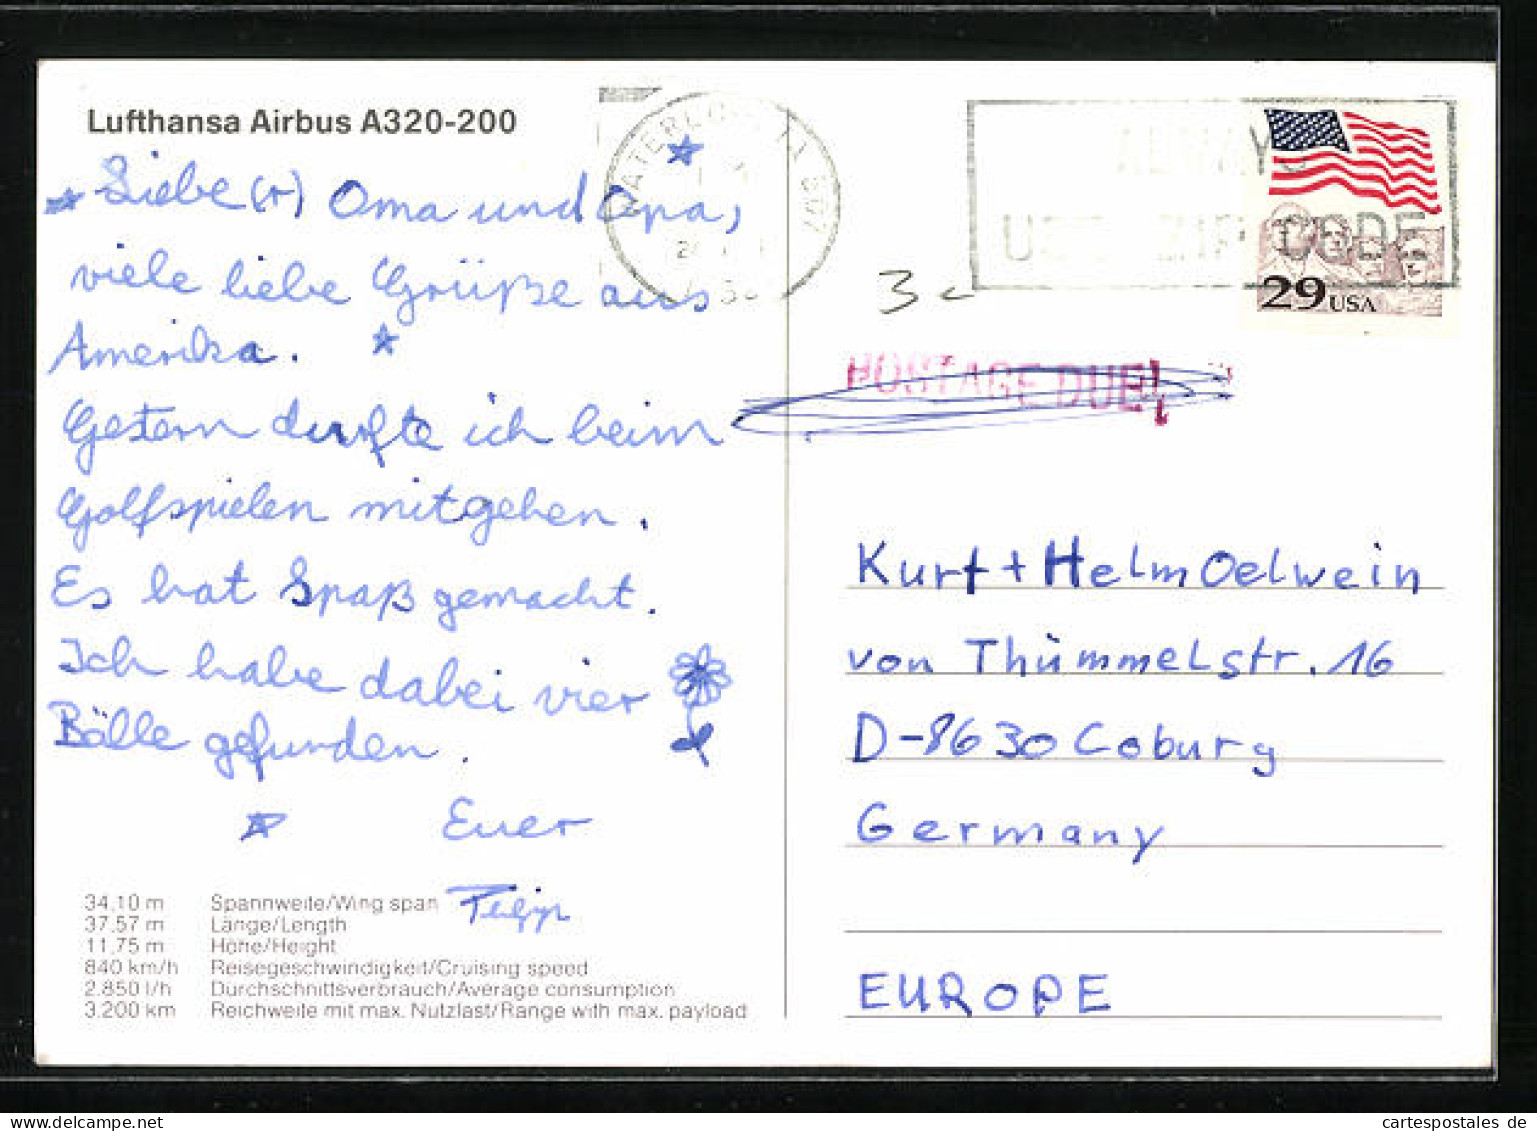 Lufthansa Airbus A320-200
Liebe(r) Oma und Opa,
viele liebe Grüße aus
Amerika.
Gestern durfte ich beim
Golfspielen mitgehen.
Es hat Spaß gemacht.
Ich habe dabei vier
Bälle gefunden.
Euer
34,10 m Spannweite/Wing span
37,57 m Länge/Length
11,75 m Höhe/Height
840 km/h Reisegeschwindigkeit/Cruising speed
2.850 l/h Durchschnittsverbrauch/Average consumption
3.200 km Reichweite mit max. Nutzlast/Range with max. payload
WATERLOO IA 507
ALWAYS
USE ZIP CODE
29 USA
3 c
POSTAGE DUE
Kurt + Helm Oelwein
von Thümmelstr. 16
D-8630 Coburg
Germany
EUROPE
www.delcampe.net
cartespostales de